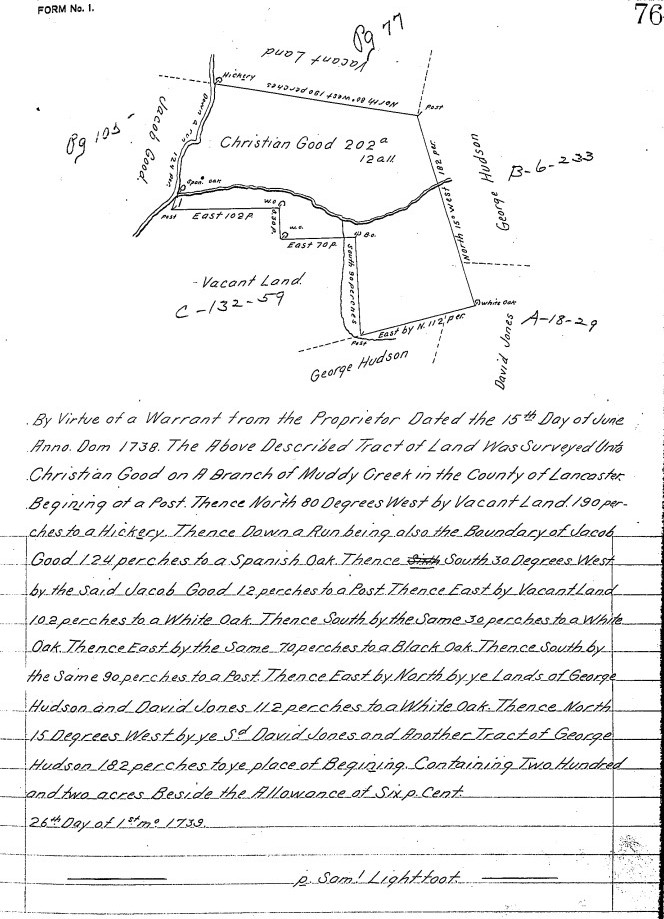 FORM No. 1.
76
Pg 77
Vacant Land
Hickery
North 80° West 190 perches
Post
Down a run
124 per.
Jacob Good.
Pg 105
Christian Good 202ª
12 all.
Span. Oak
Post
East 102 p.
W.O.
S 30 p.
W.O.
East 70 p.
Bo.
South 90 perches
North 15° West 182 per.
George Hudson
B-6-233
Vacant Land.
C-132-59
White Oak
A-18-29
David Jones
Post
East by N. 112 per.
George Hudson
By Virtue of a Warrant from the Proprietor Dated the 15th Day of June
Anno. Dom 1738. The Above Described Tract of Land Was Surveyed Unto
Christian Good on A Branch of Muddy Creek in the County of Lancaster.
Begining at a Post. Thence North 80 Degrees West by Vacant Land. 190 per-
ches to a Hickery. Thence Down a Run being also the Boundary of Jacob
Good 124 perches to a Spanish Oak Thence Sixth South 30 Degrees West
by the Said Jacob Good 12 perches to a Post Thence East by Vacant Land
102 perches to a White Oak Thence South by the Same 30 perches to a White
Oak Thence East by the Same 70 perches to a Black Oak Thence South by
the Same 90 perches to a Post Thence East by North by ye Lands of George
Hudson and David Jones 112 perches to a White Oak Thence North
15 Degrees West by ye Sd David Jones and Another Tract of George
Hudson 182 perches to ye place of Begining. Containing Two Hundred
and two acres Beside the Allowance of Six p. Cent.
26th Day of 1st mo 1739.
p. Saml Lightfoot.